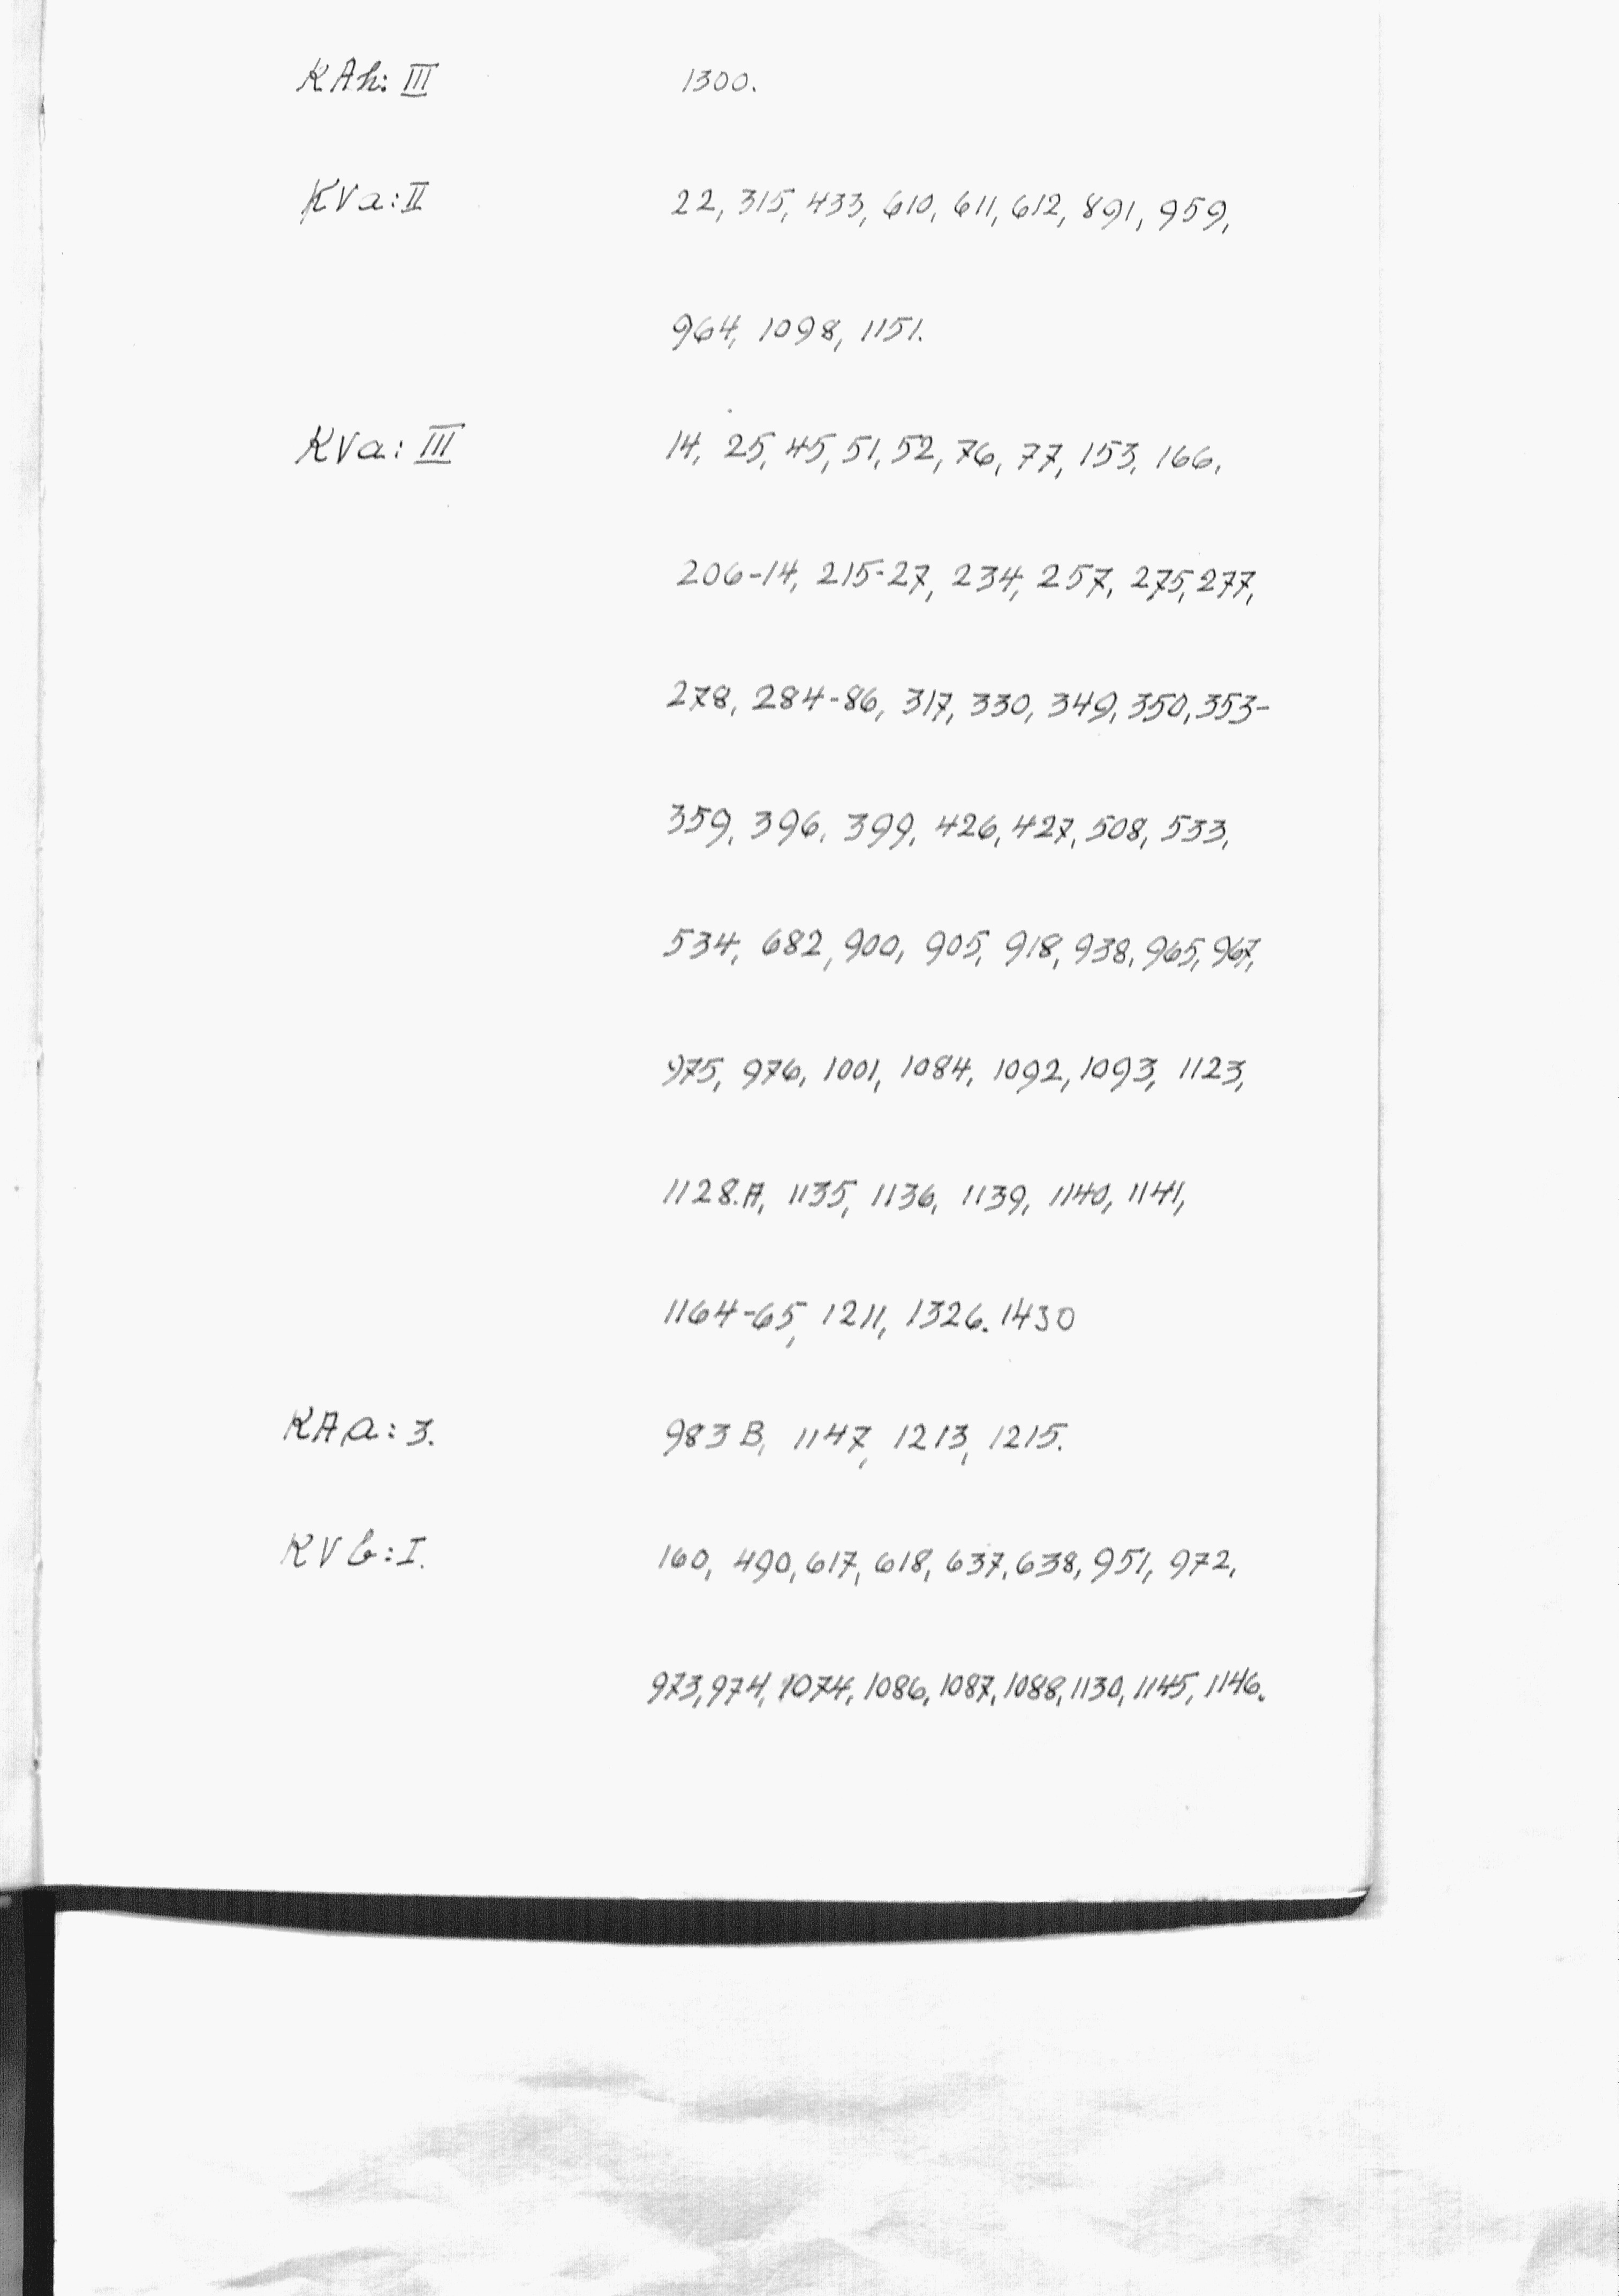 KAh: III 1300.
KVa: II 22, 315, 433, 610, 611, 612, 891, 959,
964, 1098, 1151.
KVa: III 14, 25, 45, 51, 52, 76, 77, 153, 166,
206-14, 215-27, 234, 257, 275, 277,
278, 284-86, 317, 330, 349, 350, 353-
359, 396, 399, 426, 427, 508, 533,
534, 682, 900, 905, 918, 938, 965, 967,
975, 976, 1001, 1084, 1092, 1093, 1123,
1128.A, 1135, 1136, 1139, 1140, 1141,
1164-65, 1211, 1326. 1430
KAa: 3. 983 B, 1147, 1213, 1215.
KVb: I. 160, 490, 617, 618, 637, 638, 951, 972,
973, 974, 1074, 1086, 1087, 1088, 1130, 1145, 1146.